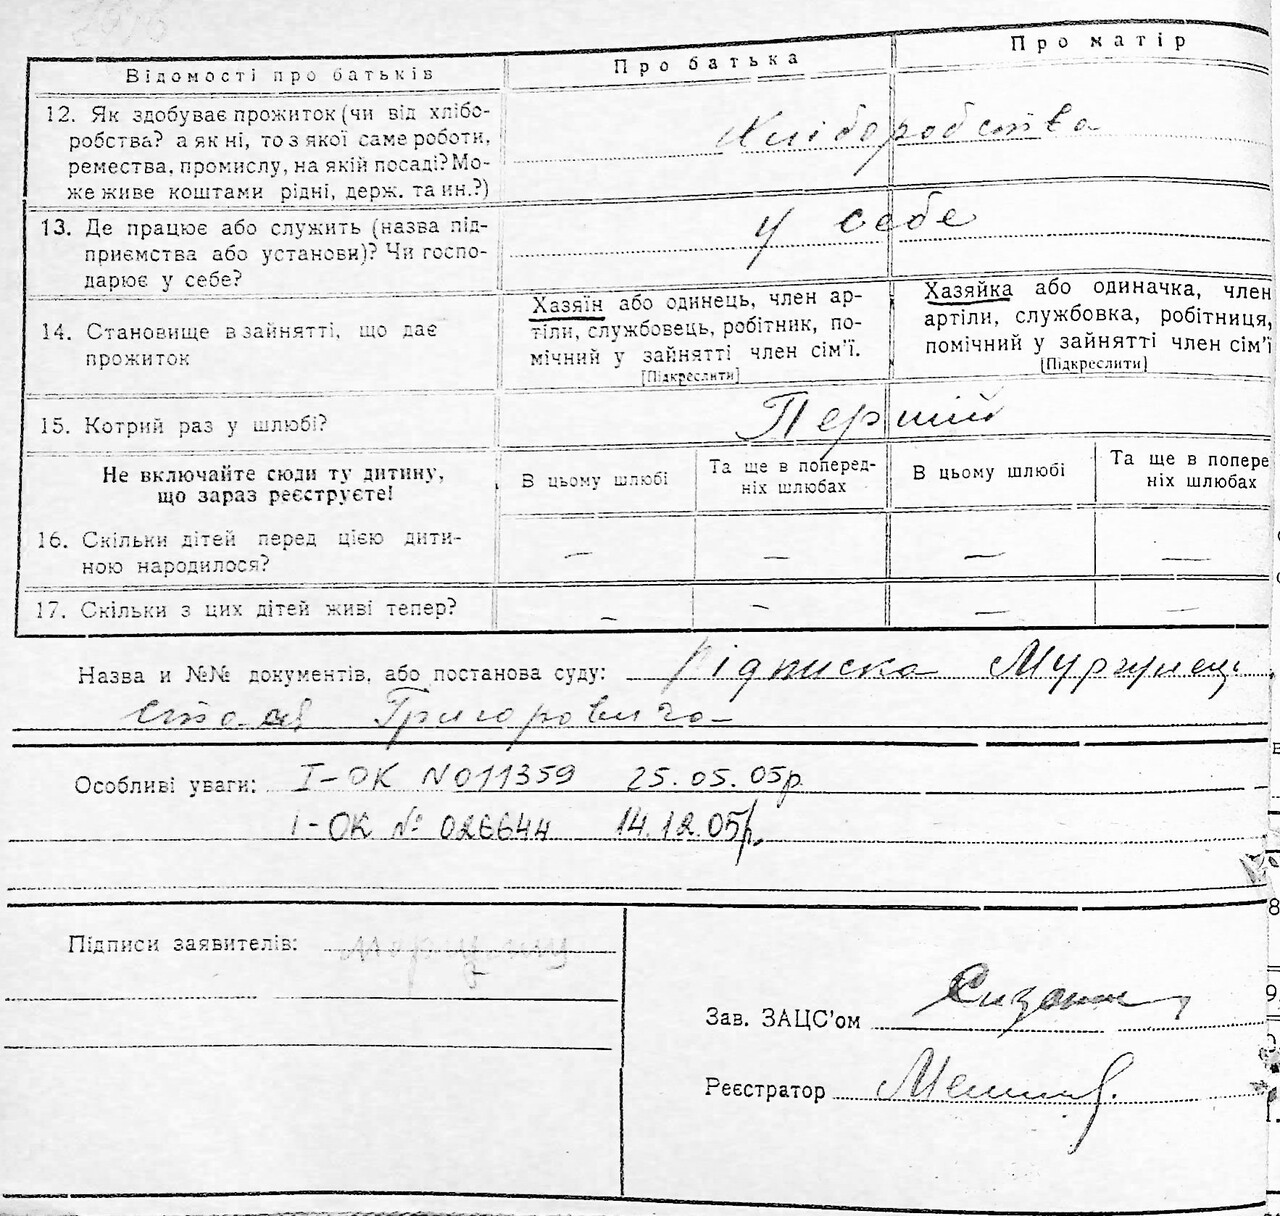 Відомості про батьків
Про батька
Про матір
12. Як здобуває прожиток (чи від хлібо-
робства? а як ні, то з якої саме роботи,
ремества, промислу, на якій посаді? Мо-
же живе коштами рідні, держ. та ин.?)
Хліборобства
13. Де працює або служить (назва під-
приємства або установи)? Чи госпо-
дарює у себе?
у себе
14. Становище в зайнятті, що дає
прожиток
Хазяїн або одинець, член ар-
тіли, службовець, робітник, по-
мічний у зайнятті член сім'ї.
[Підкреслити]
Хазяйка або одиначка, член
артіли, службовка, робітниця,
помічний у зайнятті член сім'ї
[Підкреслити]
15. Котрий раз у шлюбі?
Перший
Не включайте сюди ту дитину,
що зараз реєструєте!
В цьому шлюбі
Та ще в поперед-
ніх шлюбах
В цьому шлюбі
Та ще в попере
ніх шлюбах
16. Скільки дітей перед цією дити-
ною народилося?
— — — —
17. Скільки з цих дітей живі тепер?
— — — —
Назва и №№ документів, або постанова суду: Підписка
Григоровича
Особливі уваги: І-ОК N 011359 25.05.05р.
І-ОК № 026644 14.12.05р.
Підписи заявителів:
Зав. ЗАЦС'ом
Реєстратор